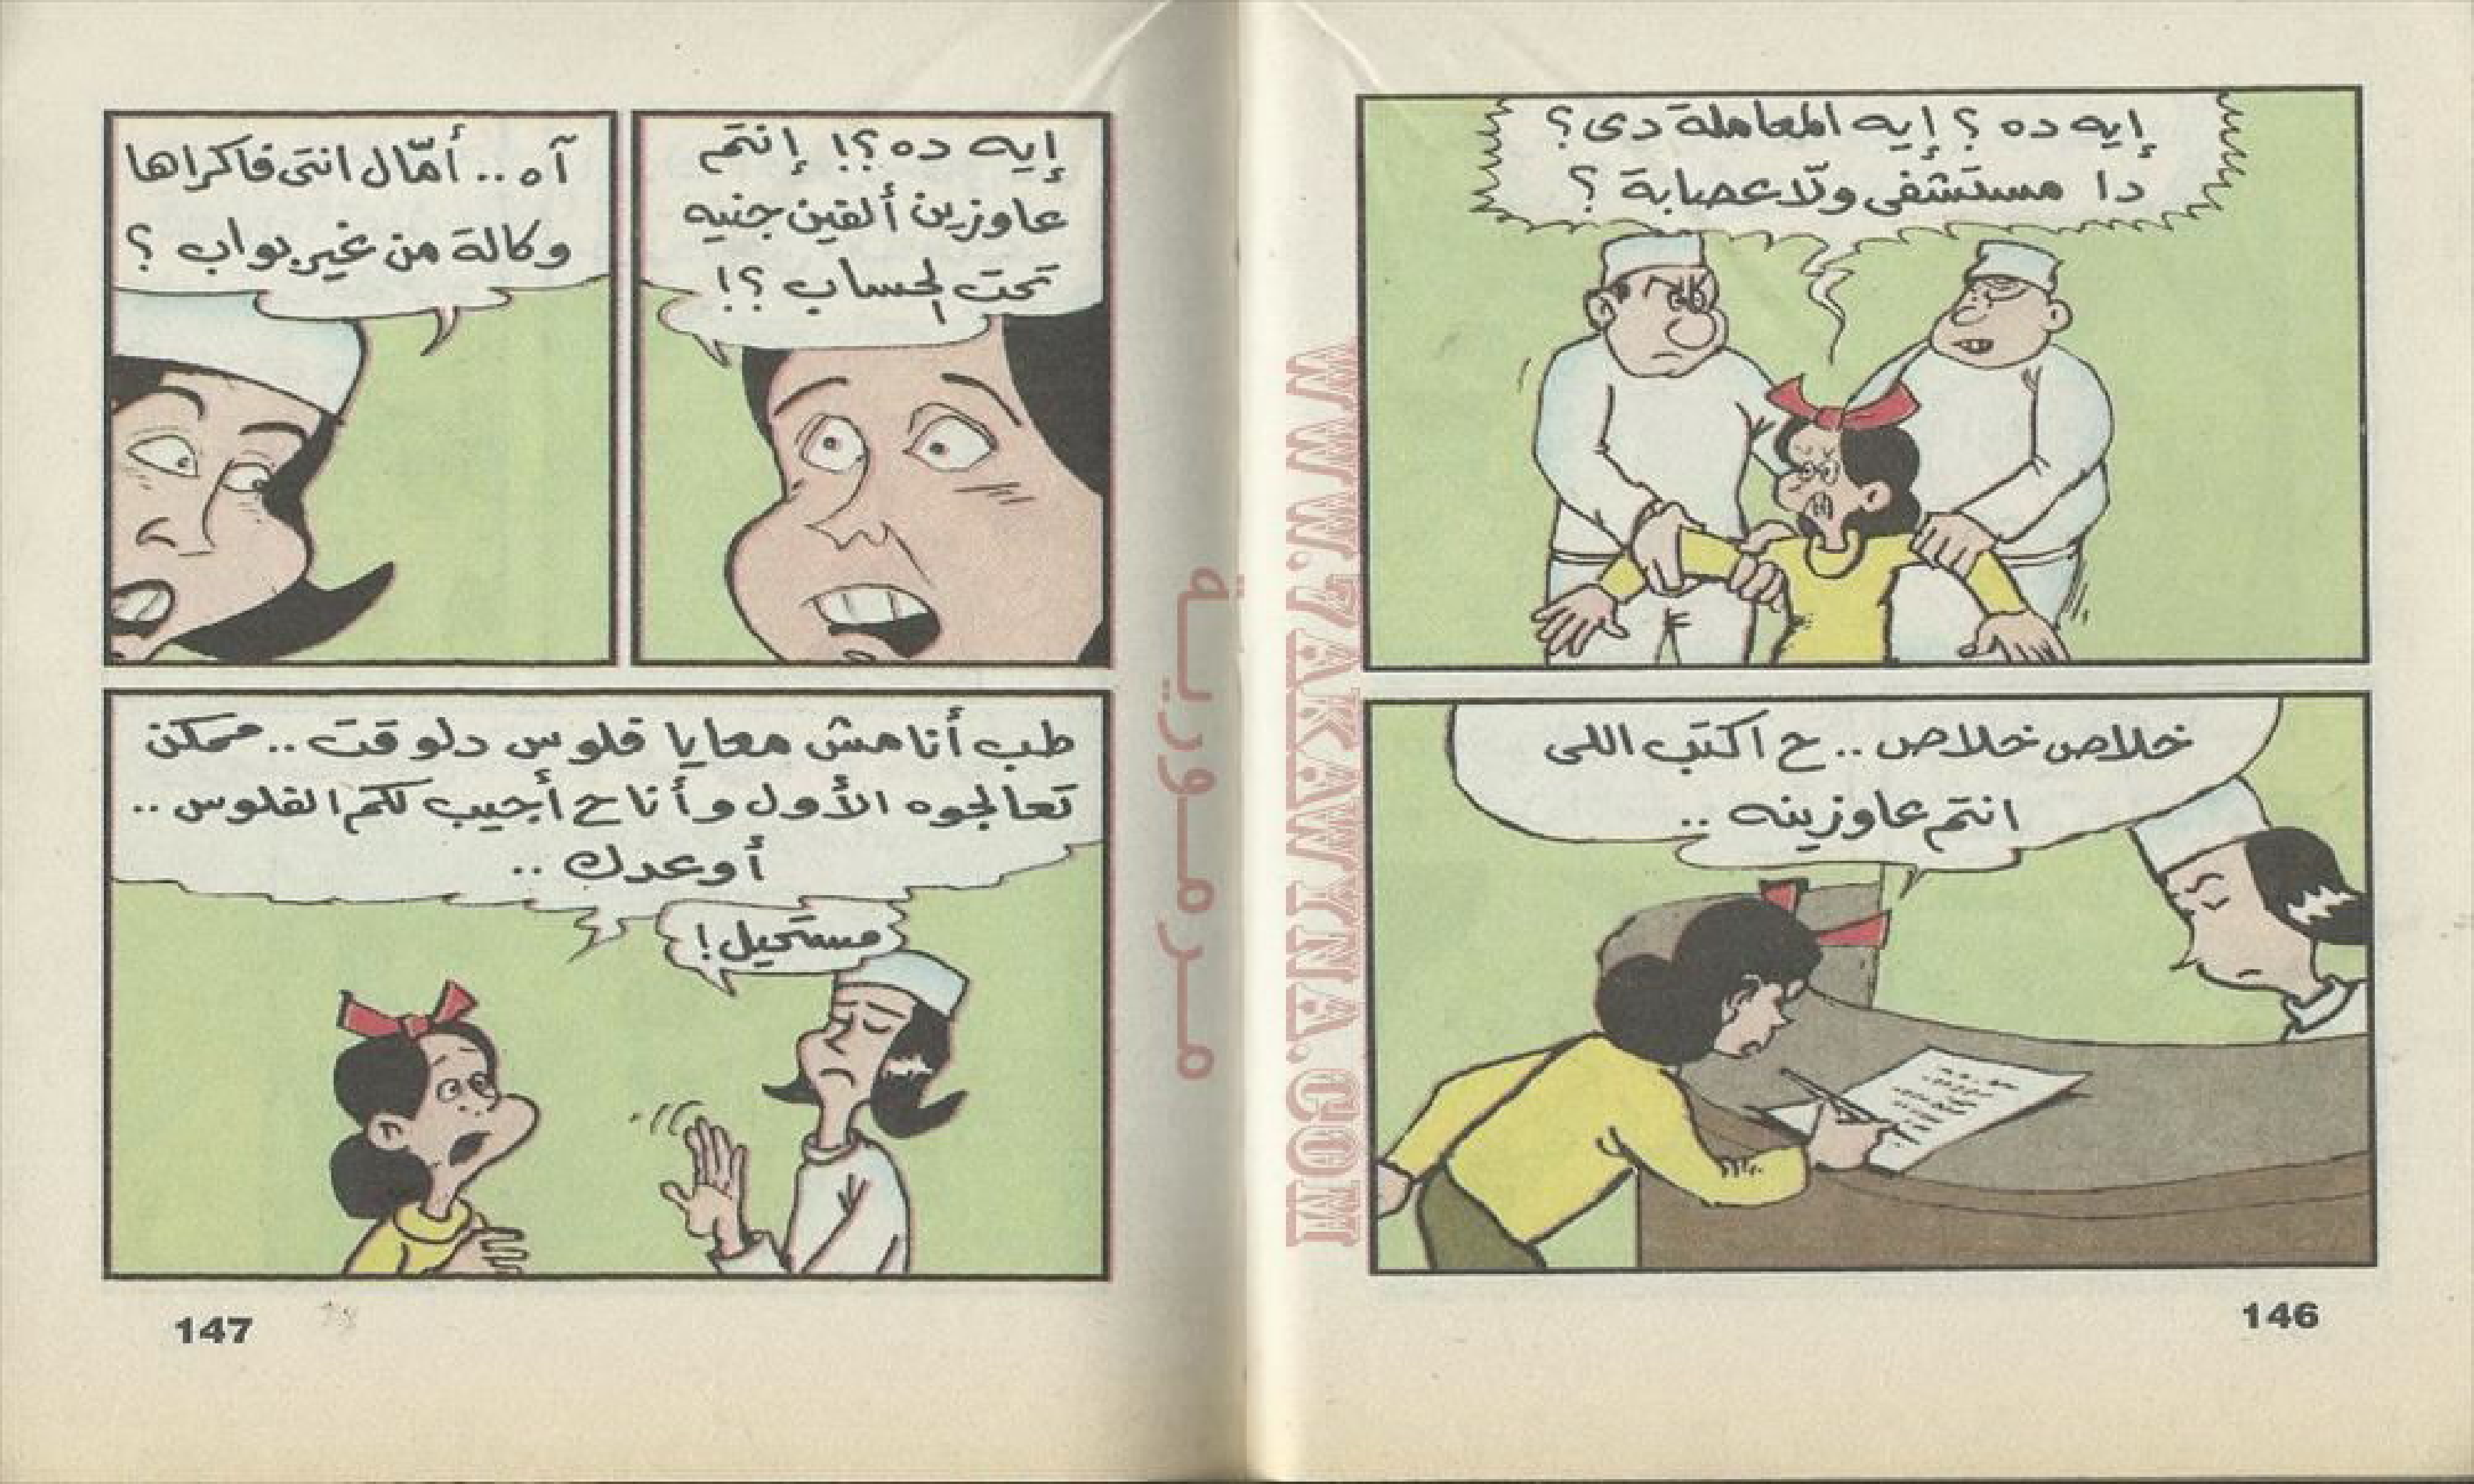 إيه ده ؟ إيه المعاملة دى ؟
دا مستشفى ولّا عصابة ؟
خلاص خلاص .. ح اكتب اللى
انتم عاوزينه ..
146
إيه ده ؟! إنتم
عاوزين ألفين جنيه
تحت الحساب ؟!
آه .. أمّال انتى فاكراها
وكالة من غير بواب ؟
طب أنا مش معايا فلوس دلوقت .. ممكن
تعالجوه الأول وأنا ح أجيب لكم الفلوس ..
أوعدك ..
مستحيل !
147
WWW.7AKAWYNA.COM
مرمورية